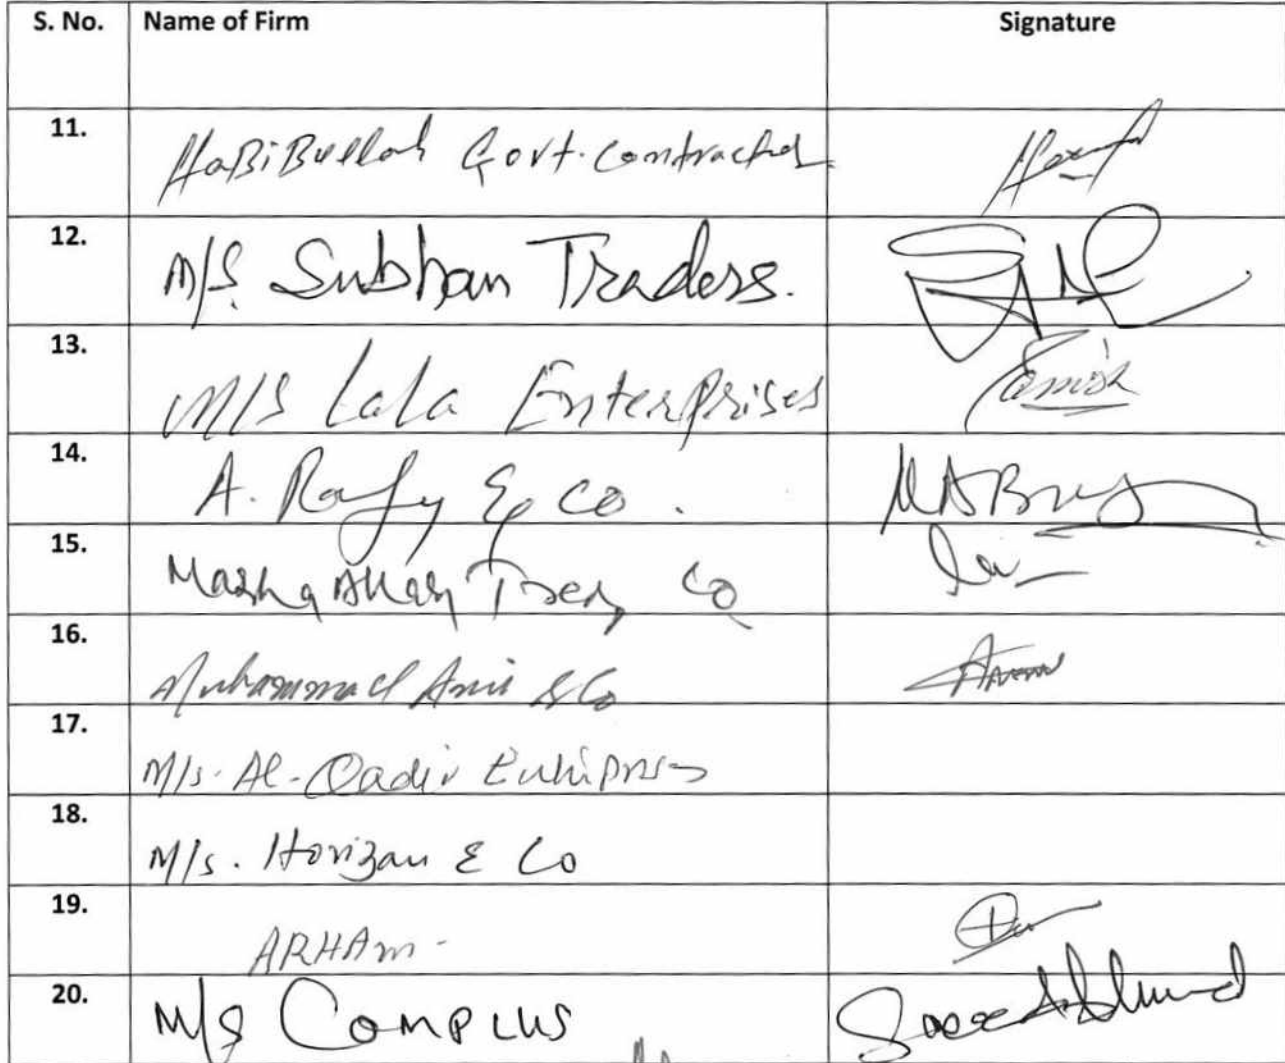 S. No. Name of Firm Signature
11. HaBiBullah Govt. Contractor
12. M/S. Subhan Traders.
13. M/S Lala Enterprises
14. A. Rafy & Co.
15. Masha Allah Co
16. Muhammad Amir & Co
17. M/s. Al-Qadir Enterprises
18. M/s. Horizan & Co
19. ARHAm-
20. M/s Complus Saeed Ahmed